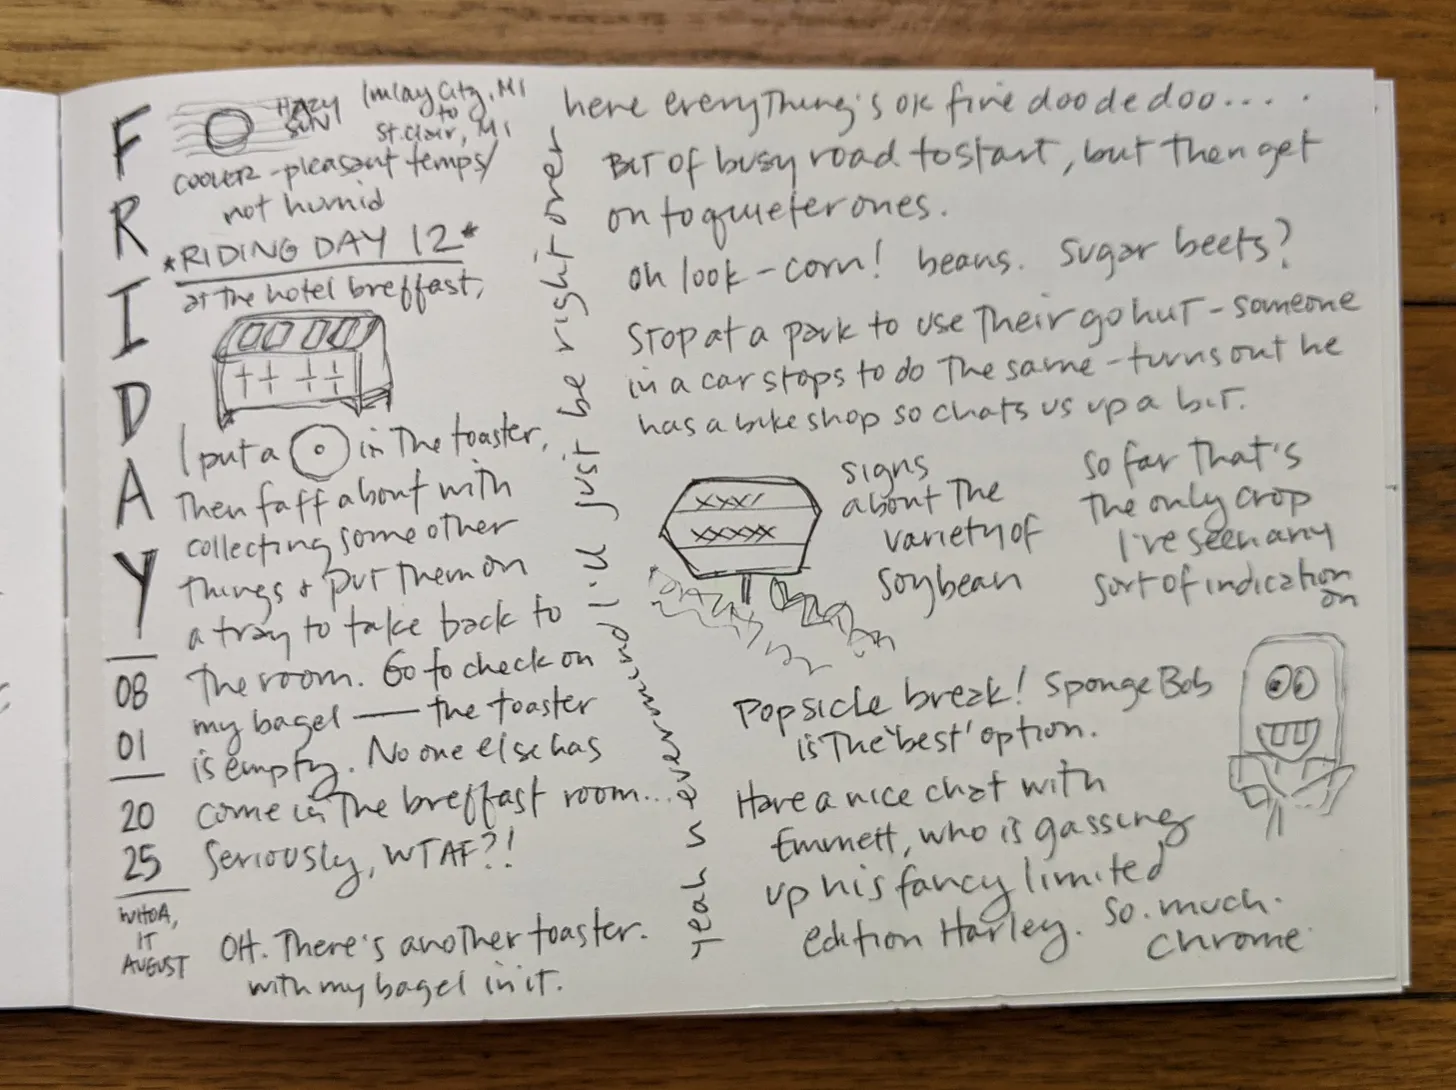 FRIDAY
08
01
20
25
WHOA,
IT
AUGUST
HAZY
SUN
Imlay City, MI
to
St. Clair, MI
COOLER - pleasant temps/
not humid
*RIDING DAY 12*
at the hotel breffast,
I put a in the toaster,
Then faff about with
collecting some other
things + put them on
a tray to take back to
the room. Go to check on
my bagel — the toaster
is empty. No one else has
come in the breffast room...
Seriously, WTAF?!
OH. There's another toaster.
with my bagel in it.
Yeah nevermind I'll just be right over
here everything's ok fine doo de doo....
BIT OF busy road to start, but then get
on to quieter ones.
oh look - corn! beans. Sugar beets?
Stop at a park to use their go hut - someone
in a car stops to do the same - turns out he
has a bike shop so chats us up a bit.
XXXX
XXXXX
signs
about the
variety of
soybean
So far that's
the only crop
I've seen any
sort of indication
on
Popsicle break! SpongeBob
is the 'best' option.
Have a nice chat with
Emmett, who is gassing
up his fancy limited
edition Harley. So. much.
chrome.